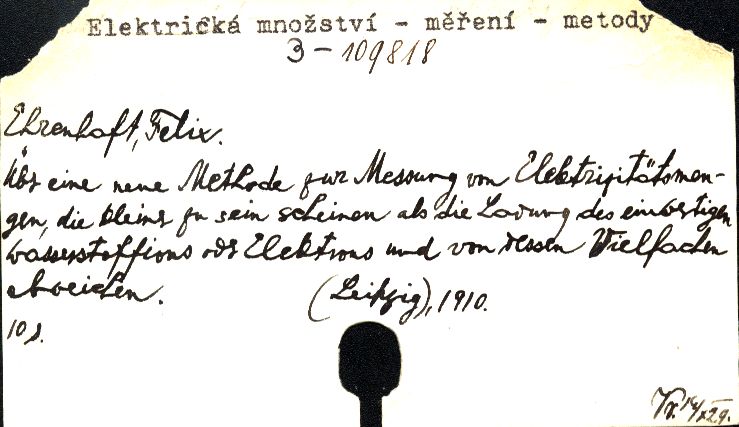 Elektrická množství - měření - metody
3-109818
Ehrenhaft, Felix.
Über eine neue Methode zur Messung von Elektrizitätsmen-
gen, die kleiner zu sein scheinen als die Ladung des einwertigen
Wasserstoffions oder Elektrons und von dessen Vielfachen
abweichen. (Leipzig), 1910.
10 s.